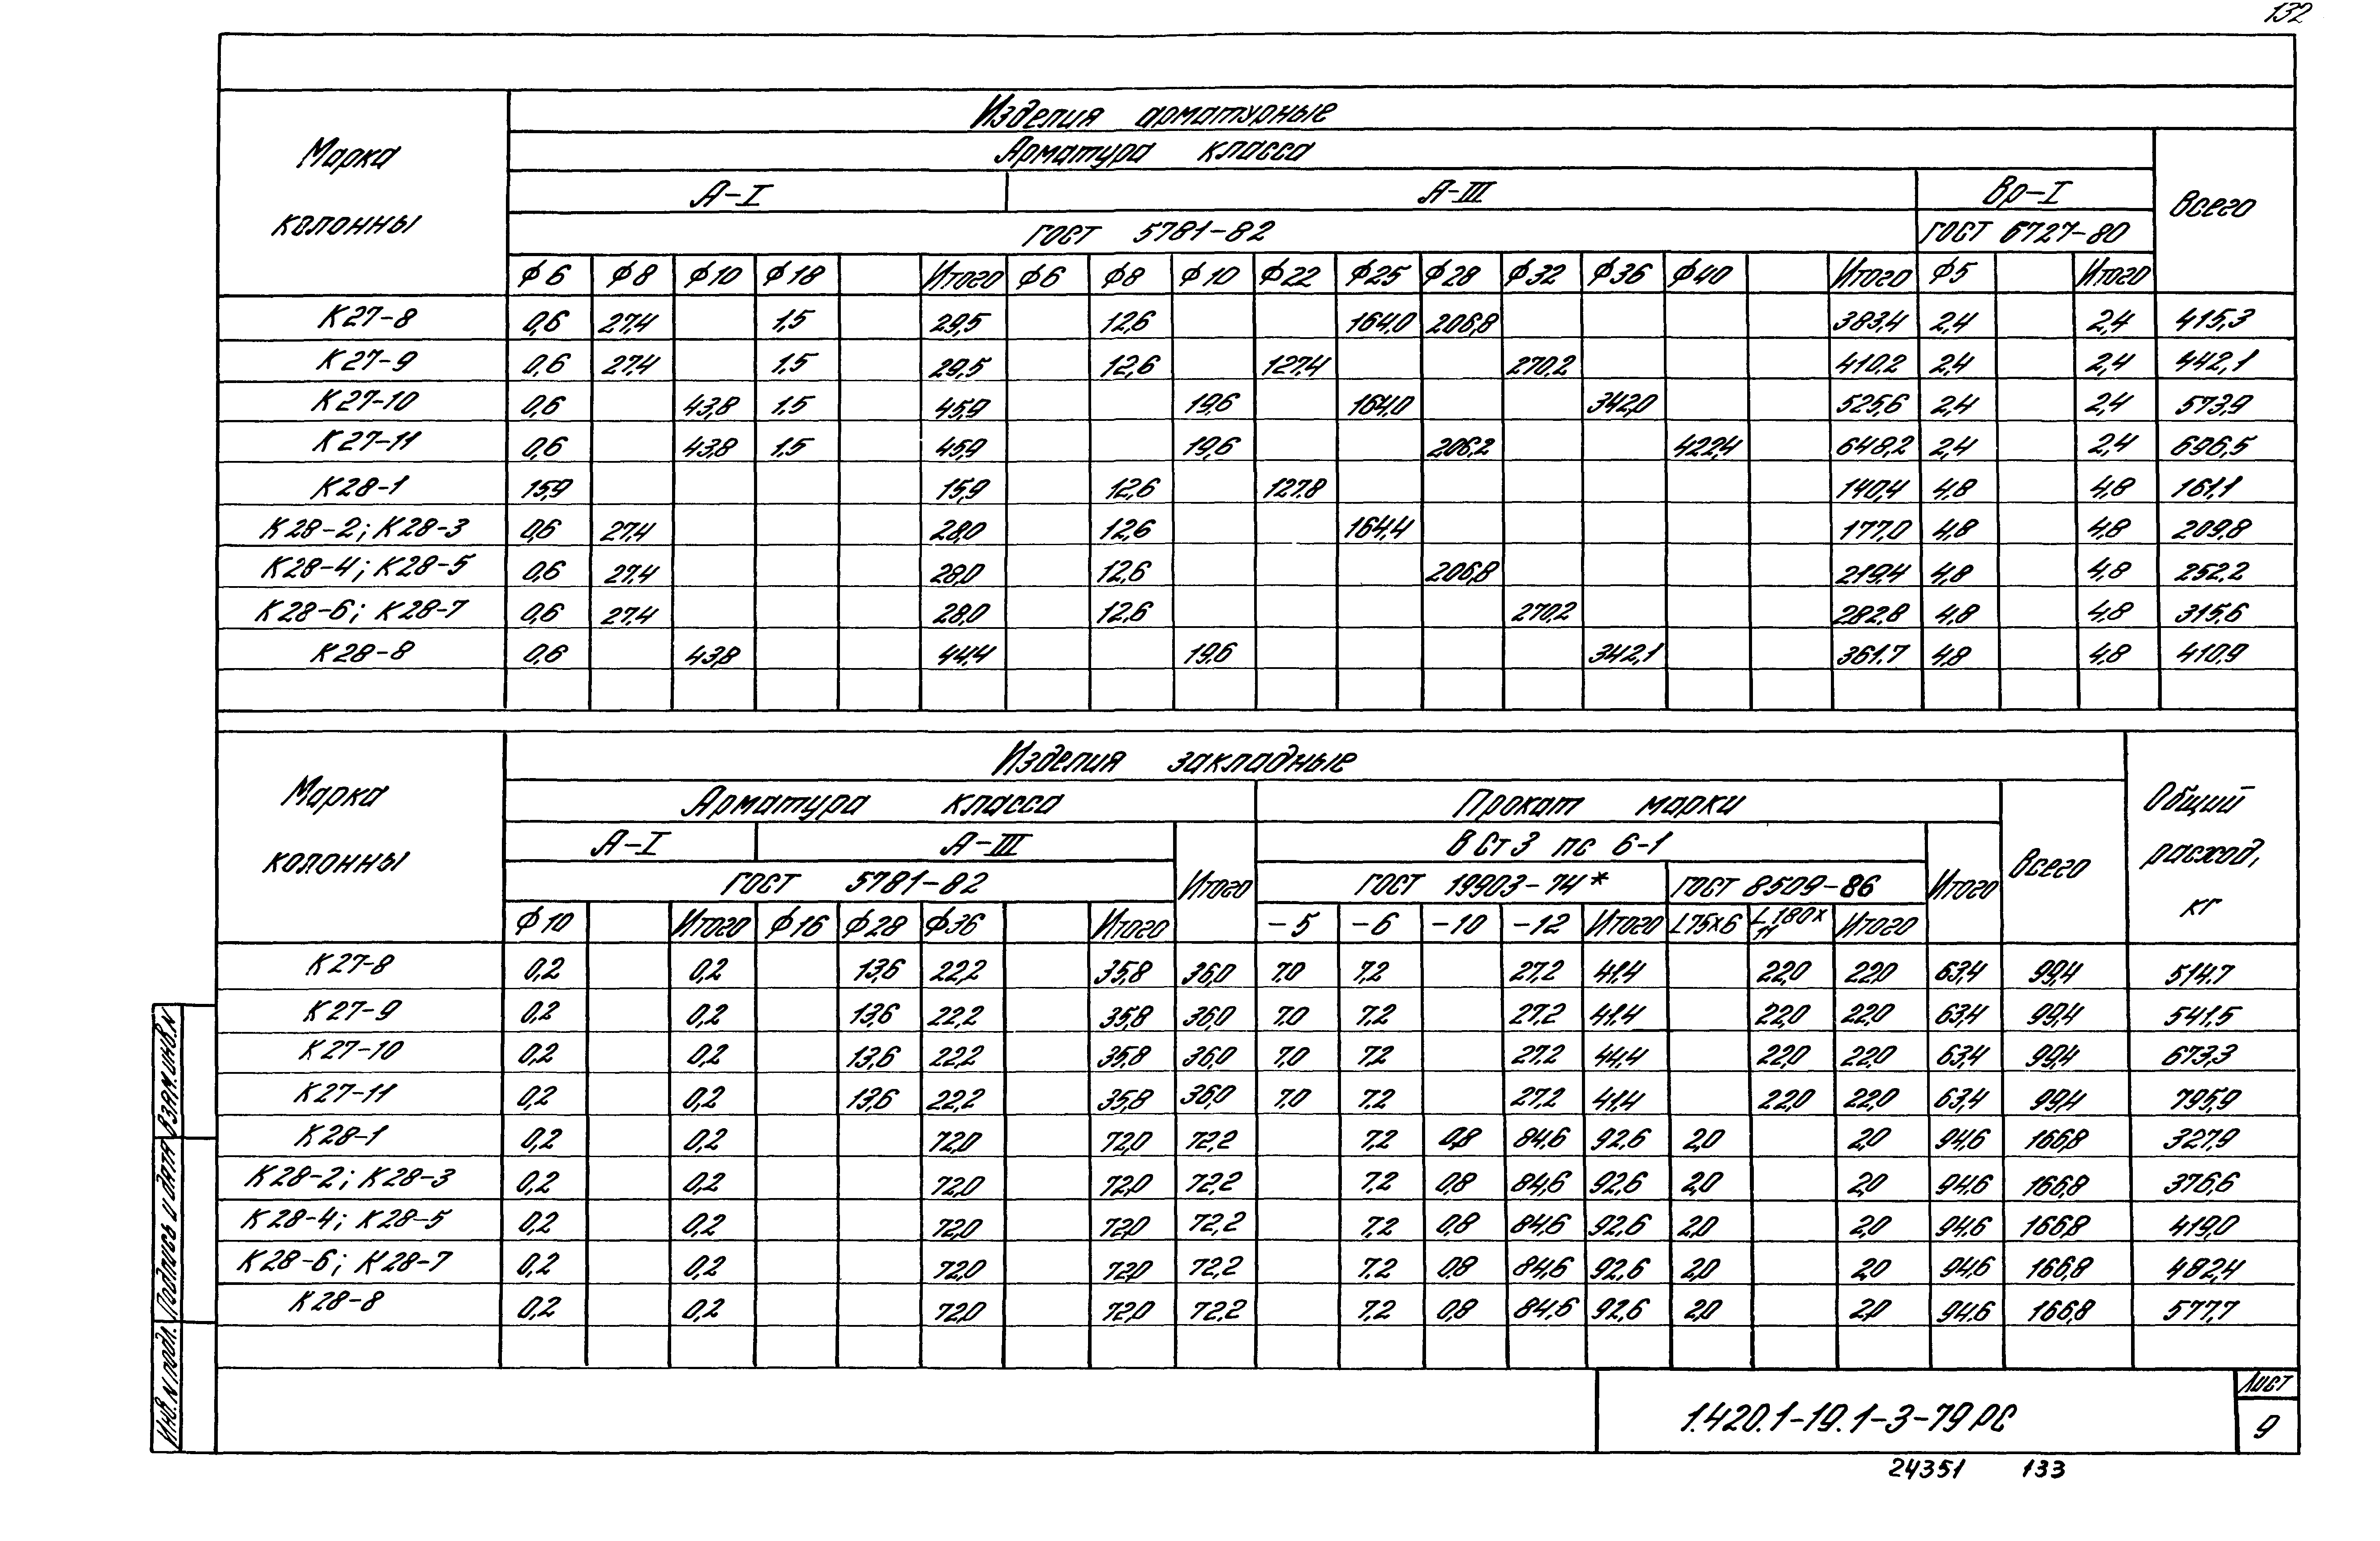 132
Изделия арматурные
Марка колонны
Арматура класса
Всего
А-I А-III Вр-I
ГОСТ 5781-82 ГОСТ 6727-80
ф6 ф8 ф10 ф18 Итого ф6 ф8 ф10 ф22 ф25 ф28 ф32 ф36 ф40 Итого ф5 Итого
К27-8 0,6 27,4 1,5 29,5 12,6 164,0 206,8 383,4 2,4 2,4 415,3
К27-9 0,6 27,4 1,5 29,5 12,6 127,4 270,2 410,2 2,4 2,4 442,1
К27-10 0,6 43,8 1,5 45,9 19,6 164,0 342,0 525,6 2,4 2,4 573,9
К27-11 0,6 43,8 1,5 45,9 19,6 206,2 422,4 648,2 2,4 2,4 696,5
К28-1 15,9 15,9 12,6 127,8 140,4 4,8 4,8 161,1
К28-2; К28-3 0,6 27,4 28,0 12,6 164,4 177,0 4,8 4,8 209,8
К28-4; К28-5 0,6 27,4 28,0 12,6 206,8 219,4 4,8 4,8 252,2
К28-6; К28-7 0,6 27,4 28,0 12,6 270,2 282,8 4,8 4,8 315,6
К28-8 0,6 43,8 44,4 19,6 342,1 361,7 4,8 4,8 410,9
Изделия закладные
Марка колонны
Арматура класса Прокат марки
Общий расход, кг
А-I А-III Итого В Ст3 пс 6-1 Итого Всего
ГОСТ 5781-82 ГОСТ 19903-74* ГОСТ 8509-86
ф10 Итого ф16 ф28 ф36 Итого -5 -6 -10 -12 Итого L75x6 L180x11 Итого
К27-8 0,2 0,2 13,6 22,2 35,8 36,0 7,0 7,2 27,2 41,4 22,0 22,0 63,4 99,4 514,7
К27-9 0,2 0,2 13,6 22,2 35,8 36,0 7,0 7,2 27,2 41,4 22,0 22,0 63,4 99,4 541,5
К27-10 0,2 0,2 13,6 22,2 35,8 36,0 7,0 7,2 27,2 44,4 22,0 22,0 63,4 99,4 673,3
К27-11 0,2 0,2 13,6 22,2 35,8 36,0 7,0 7,2 27,2 41,4 22,0 22,0 63,4 99,4 795,9
К28-1 0,2 0,2 72,0 72,0 72,2 7,2 0,8 84,6 92,6 2,0 2,0 94,6 166,8 327,9
К28-2; К28-3 0,2 0,2 72,0 72,0 72,2 7,2 0,8 84,6 92,6 2,0 2,0 94,6 166,8 376,6
К28-4; К28-5 0,2 0,2 72,0 72,0 72,2 7,2 0,8 84,6 92,6 2,0 2,0 94,6 166,8 419,0
К28-6; К28-7 0,2 0,2 72,0 72,0 72,2 7,2 0,8 84,6 92,6 2,0 2,0 94,6 166,8 482,4
К28-8 0,2 0,2 72,0 72,0 72,2 7,2 0,8 84,6 92,6 2,0 2,0 94,6 166,8 577,7
Инв. N подл. Подпись и дата Взам. инв. N
1.420.1-19.1-3-79РС
Лист
9
24351 133